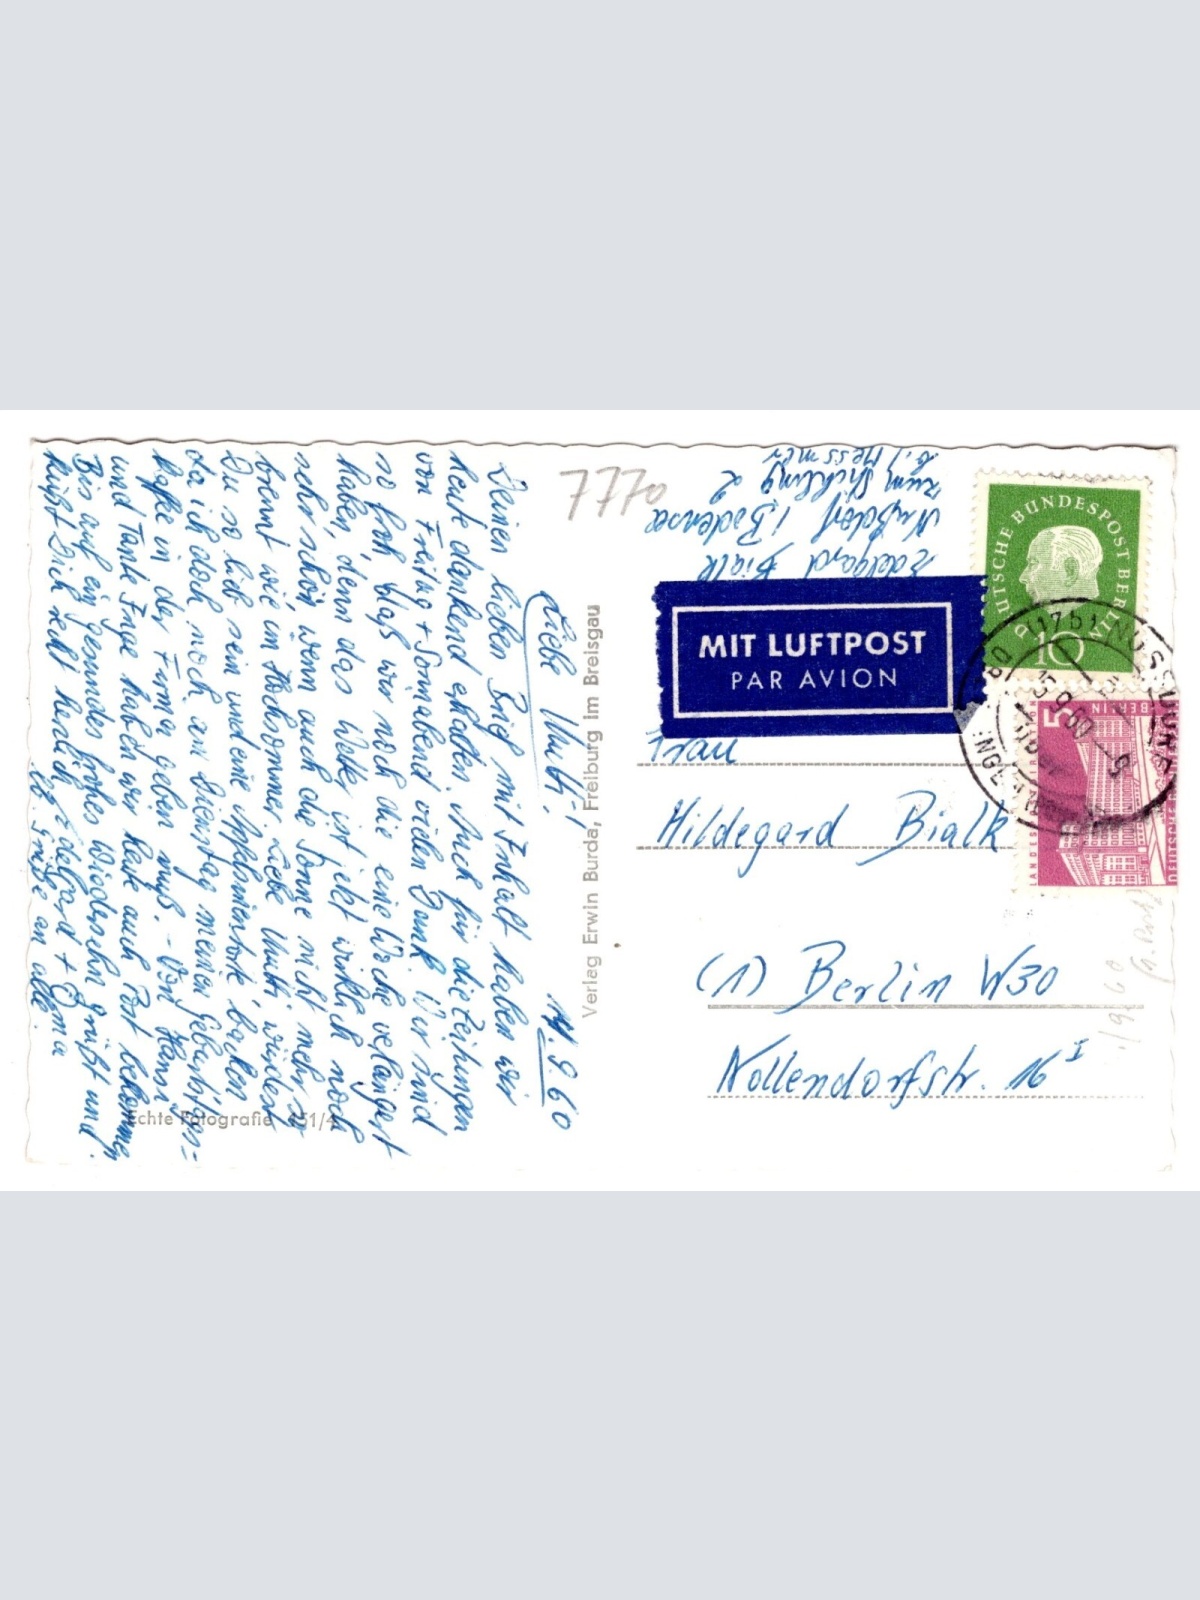 14.9.60
Liebe Mutti!
Deinen lieben Brief mit Inhalt haben wir
heute dankend erhalten. Auch für die Zeitungen
von Freitag + Sonnabend vielen Dank. Wir sind
so froh, daß wir noch die eine Woche verlängert
haben, denn das Wetter ist jetzt wirklich noch
sehr schön wenn auch die Sonne nicht mehr so
brennt wie im Hochsommer. Liebe Mutti, würdest
Du so lieb sein und eine backen
da ich doch noch am Dienstag meinen Geburtstags-
kaffee in der Firma geben muß. - Von Hansi
und Tante Inge haben wir heute auch Post bekommen
Bis auf ein gesundes frohes Wiedersehn grüßt und
küßt Dich recht herzlich Edelgard + Oma
Grüße an alle
Echte Fotografie 451/4
Verlag Erwin Burda, Freiburg im Breisgau
7770
Edelgard Bialk
Nußdorf / Bodensee
zum 2
b./ Messmer
MIT LUFTPOST
PAR AVION
DEUTSCHE BUNDESPOST BERLIN
10
5
BERLIN
DEUTSCHE
(17b) NUSSDORF
15.9.60
Frau
Hildegard Bialk
(1) Berlin W30
Nollendorfstr. 16 I